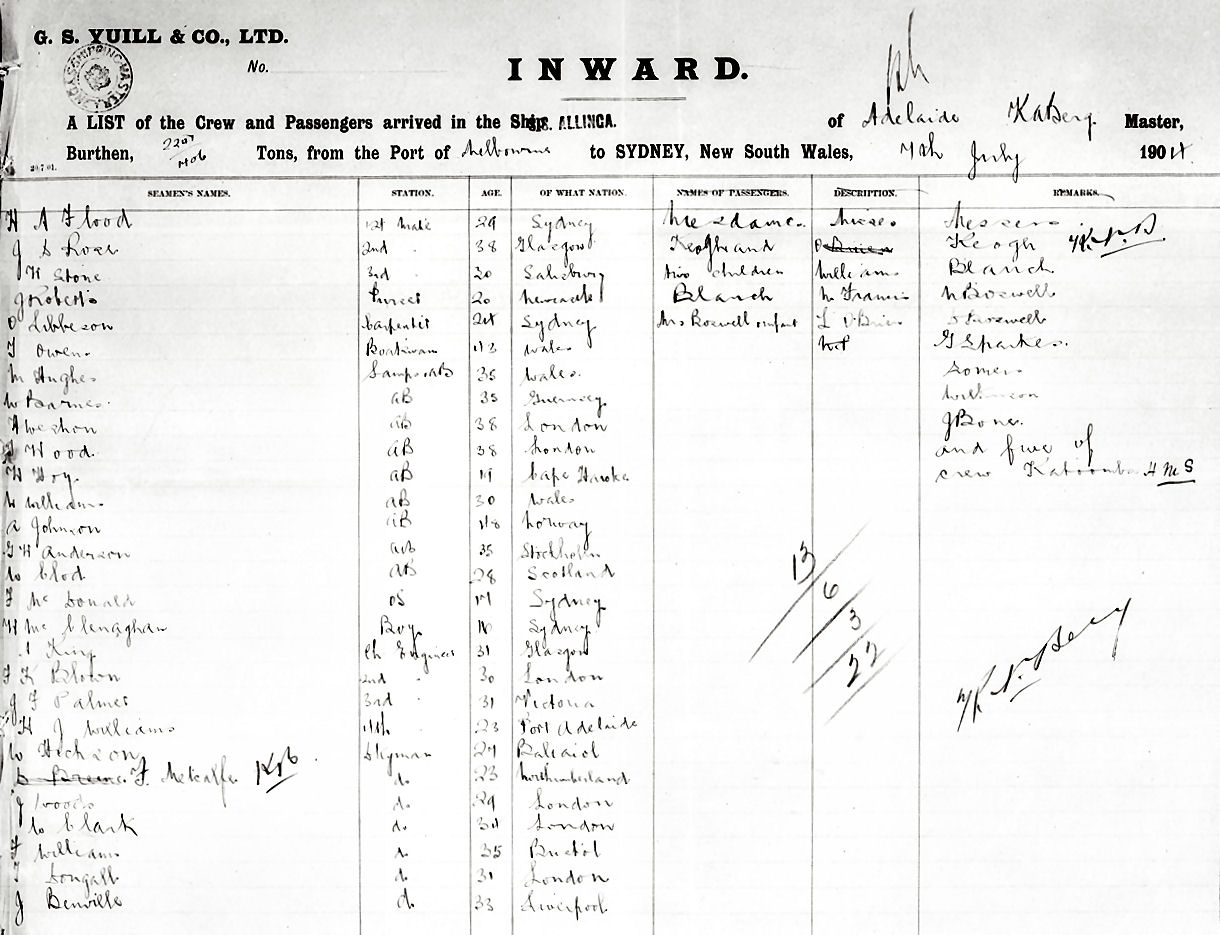 G. S. YUILL & CO., LTD.
No.
INWARD.
A LIST of the Crew and Passengers arrived in the S.S. ALLINGA. of Adelaide K N Berg. Master,
Burthen, 2207 Tons, from the Port of Melbourne to SYDNEY, New South Wales, 7th July 1904.
SEAMEN'S NAMES. STATION. AGE. OF WHAT NATION. NAMES OF PASSENGERS. DESCRIPTION. REMARKS.
H A Flood 1st Mate 29 Sydney Mesdames. Misses Messers
J S 2nd 38 Glasgow Keogh and Keogh
H Stone 3rd 20 Salisbury two children Williams Blanch
J Roberts Purser 20 Newcastle Blanch M Francis N Boswell
O Libbeson Carpenter 24 Sydney Mrs Boswell infant L O'Brien
T Owen. Boatswain 43 Wales G Sparkes.
M Hughes Lamps AB 35 Wales. Somers
W Barnes. AB 35 Guernsey Wilkinson
A Weshon AB 38 London J Bone.
Wood. AB 38 London and five of
H Hoy. AB 19 Cape crew Katoomba H M S
W Williams AB 30 Wales
A Johnson AB 48 Norway
G H Anderson AB 35 Stockholm
W Clod AB 28 Scotland
F Mc Donald OS 17 Sydney
H Mc Clenaghan Boy. 16 Sydney
King Ch Engineer 31 Glasgow
F K Blown 2nd 30 London
J F Palmer 3rd 31 Victoria
H J Williams 4th 23 Port Adelaide
W Hickson Dkyman Balcaid
F. Metcalfe do 23 Northumberland
J Woods do 29 London
W Clark do 34 London
F Williams do 35 Bristol
T Dougall do 31 London
J Benville do 33 Liverpool
13
6
3
22
K N Berg